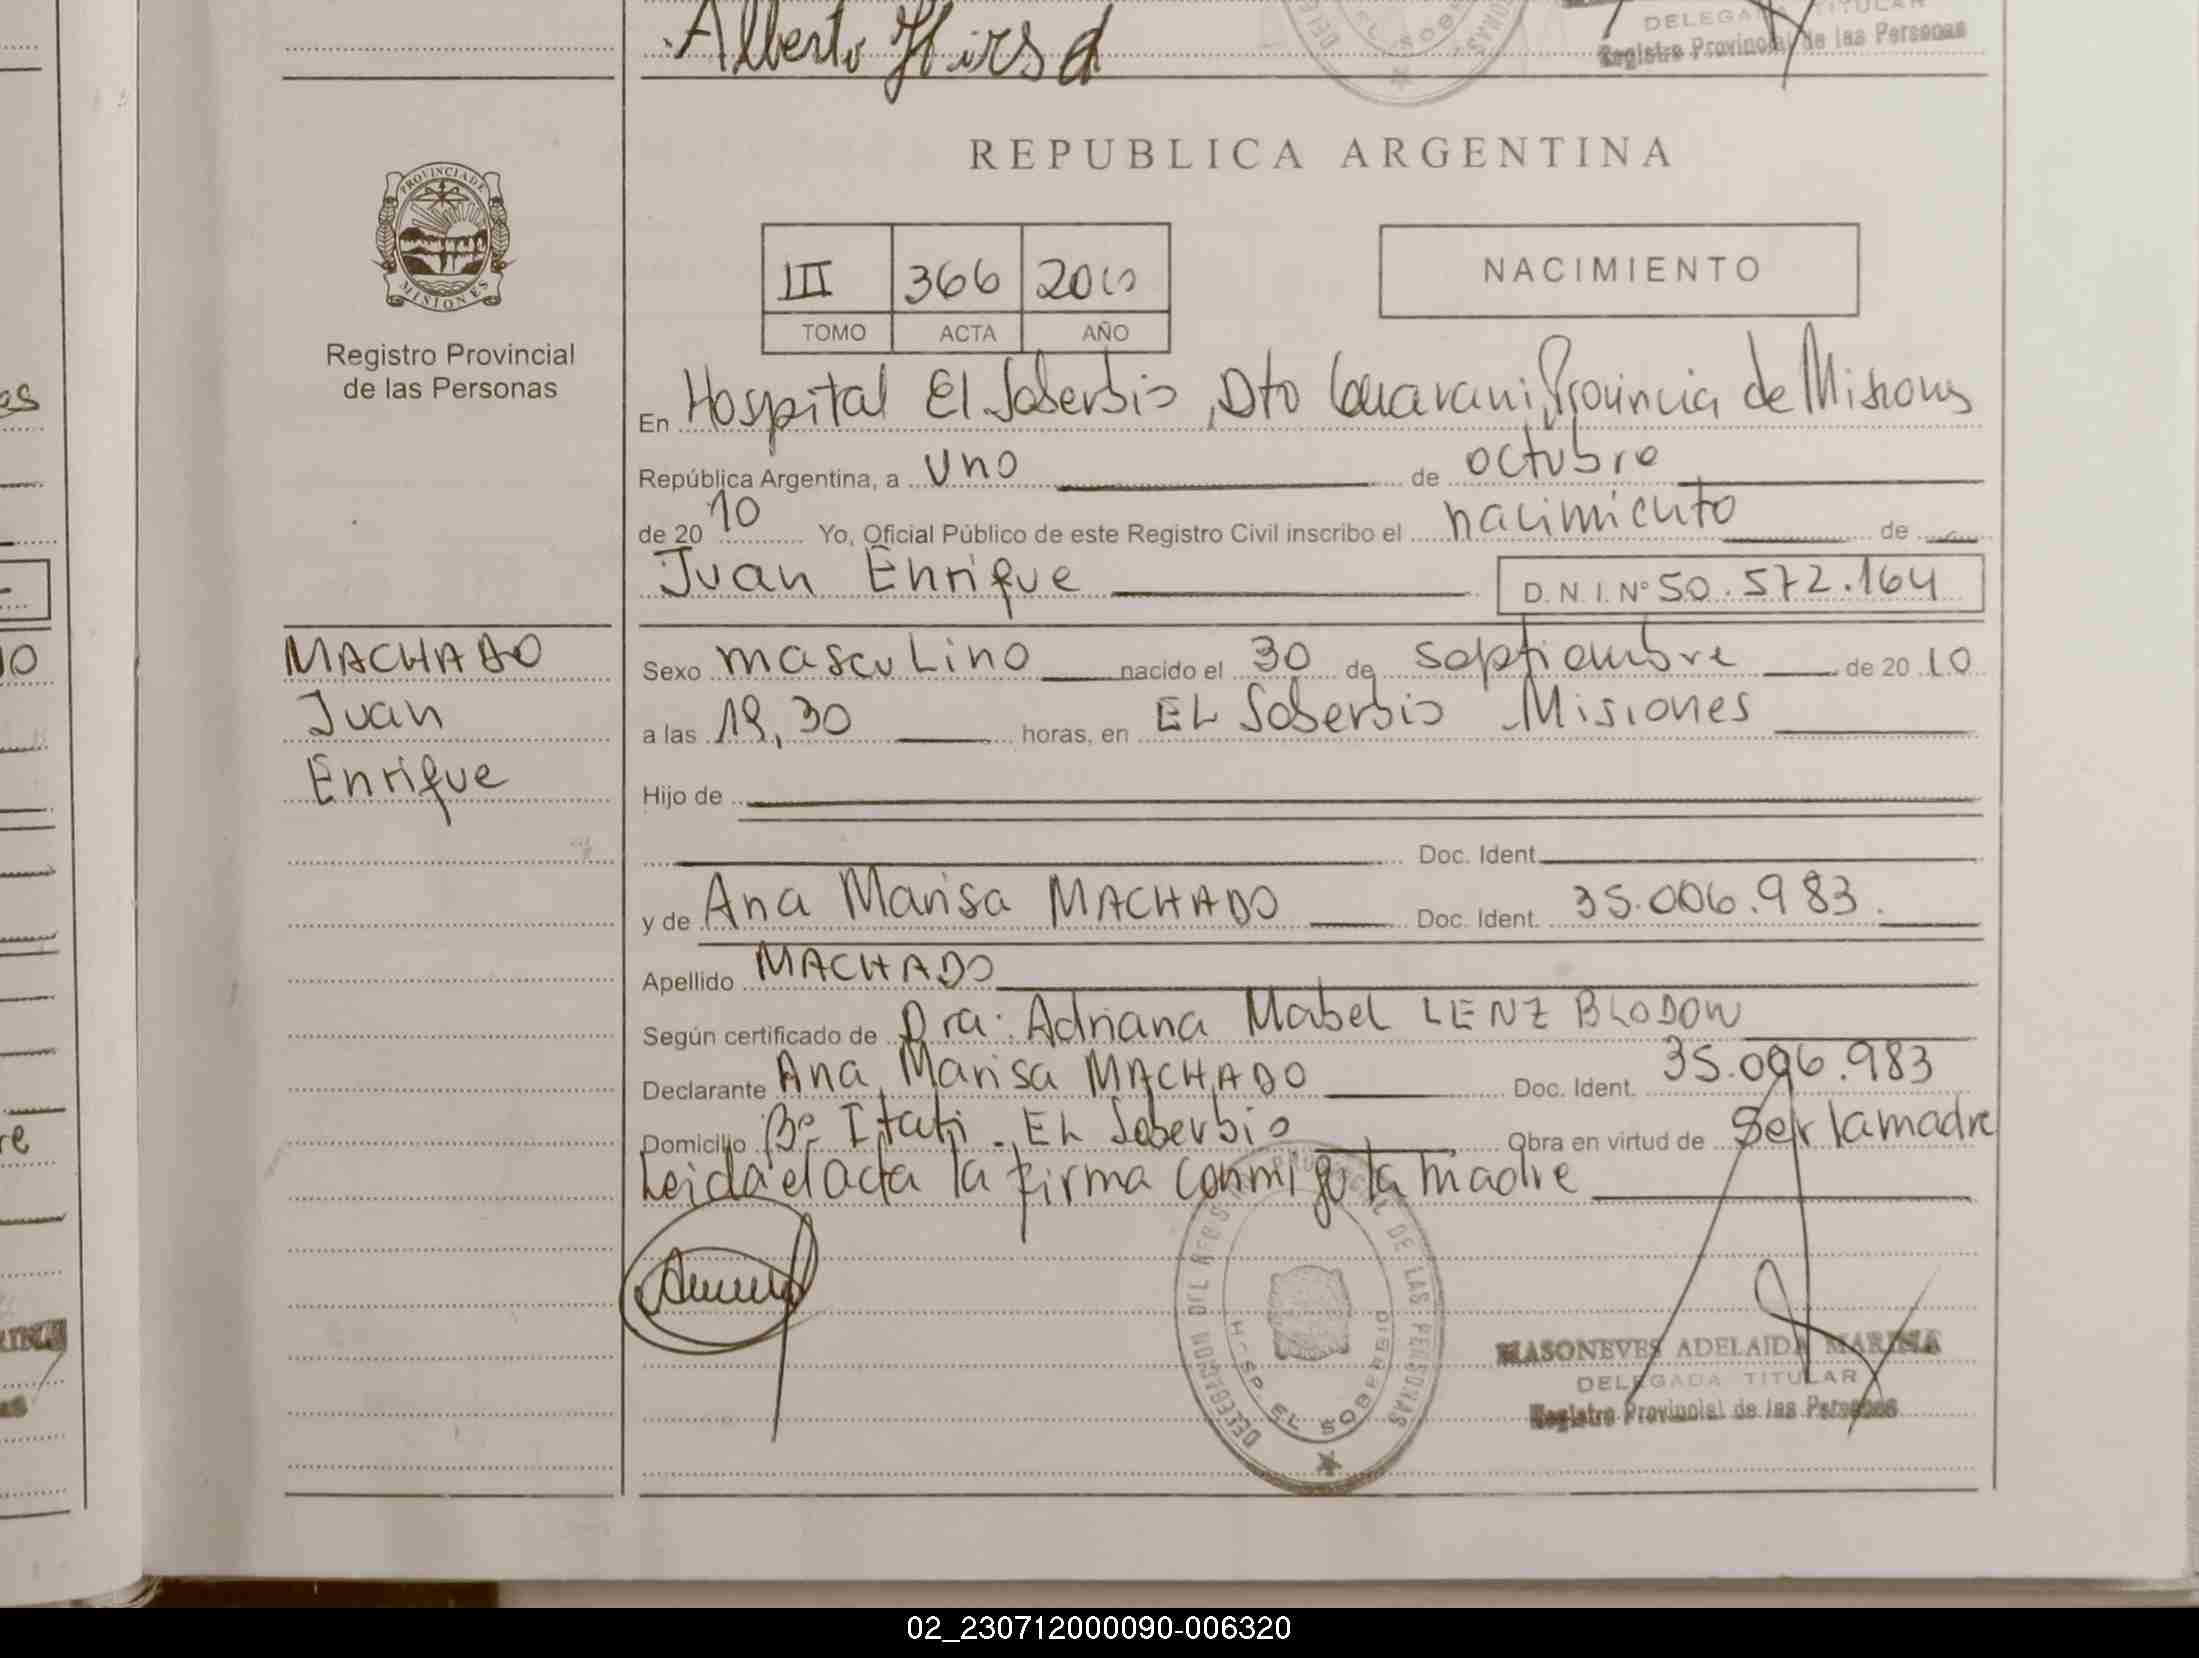 Alberto Hirsd
DELEGADA TITULAR
Registro Provincial de las Personas
REPUBLICA ARGENTINA
PROVINCIA DE MISIONES
Registro Provincial
de las Personas
III 366 2010
TOMO ACTA AÑO
NACIMIENTO
En Hospital El Soberbio, Dto Guarani, Provincia de Misiones
República Argentina, a uno de octubre
de 2010 Yo, Oficial Público de este Registro Civil inscribo el nacimiento de
Juan Enrique D.N.I. Nº 50.572.164
MACHADO
Juan
Enrique
Sexo masculino nacido el 30 de septiembre de 2010
a las 19,30 horas, en EL Soberbio Misiones
Hijo de
Doc. Ident.
y de Ana Marisa MACHADO Doc. Ident. 35.006.983.
Apellido MACHADO
Según certificado de Dra. Adriana Mabel LENZ BLODOW
Declarante Ana Marisa MACHADO Doc. Ident. 35.006.983
Domicilio Bº Itati - EL Soberbio Obra en virtud de Ser la madre
Leida el acta la firma conmigo la madre
DELEGACION DEL REGISTRO PROVINCIAL DE LAS PERSONAS
HOSP. EL SOBERBIO
MASONEVES ADELAIDA MARISA
DELEGADA TITULAR
Registro Provincial de las Personas
02_230712000090-006320